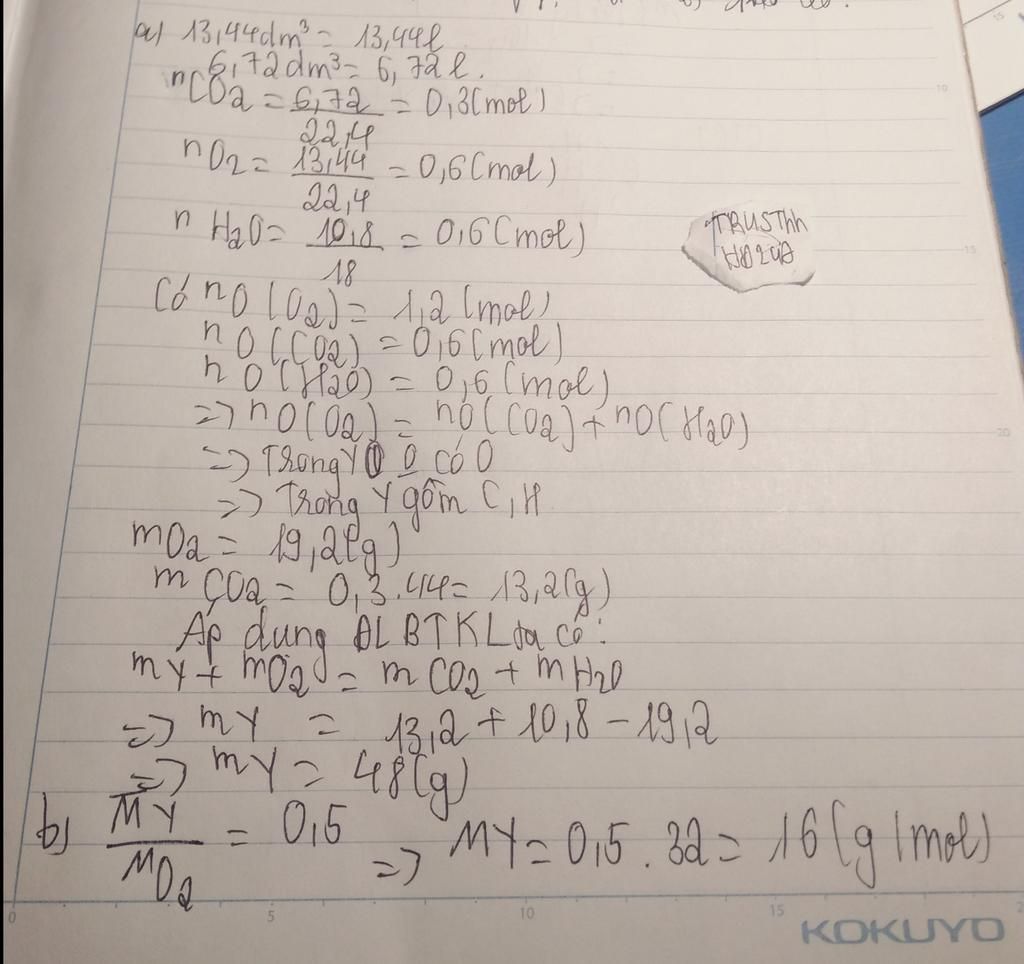 a) 13,44dm³ = 13,44l
6,72dm³ = 6,72l.
nCO2 = 6,72/22,4 = 0,3(mol)
nO2 = 13,44/22,4 = 0,6(mol)
nH2O = 10,8/18 = 0,6(mol)
TRUSThh
Có nO(O2) = 1,2(mol)
nO(CO2) = 0,6(mol)
nO(H2O) = 0,6(mol)
=> nO(O2) = nO(CO2) + nO(H2O)
=> Trong Y 0 có O
=> Trong Y gồm C, H
mO2 = 19,2(g)
mCO2 = 0,3.44 = 13,2(g)
Áp dụng ĐLBTKL ta có:
mY + mO2 = mCO2 + mH2O
=> mY = 13,2 + 10,8 - 19,2
=> mY = 48(g)
b) MY/MO2 = 0,5 => MY = 0,5.32 = 16(g/mol)
0 5 10 15
KOKUYO